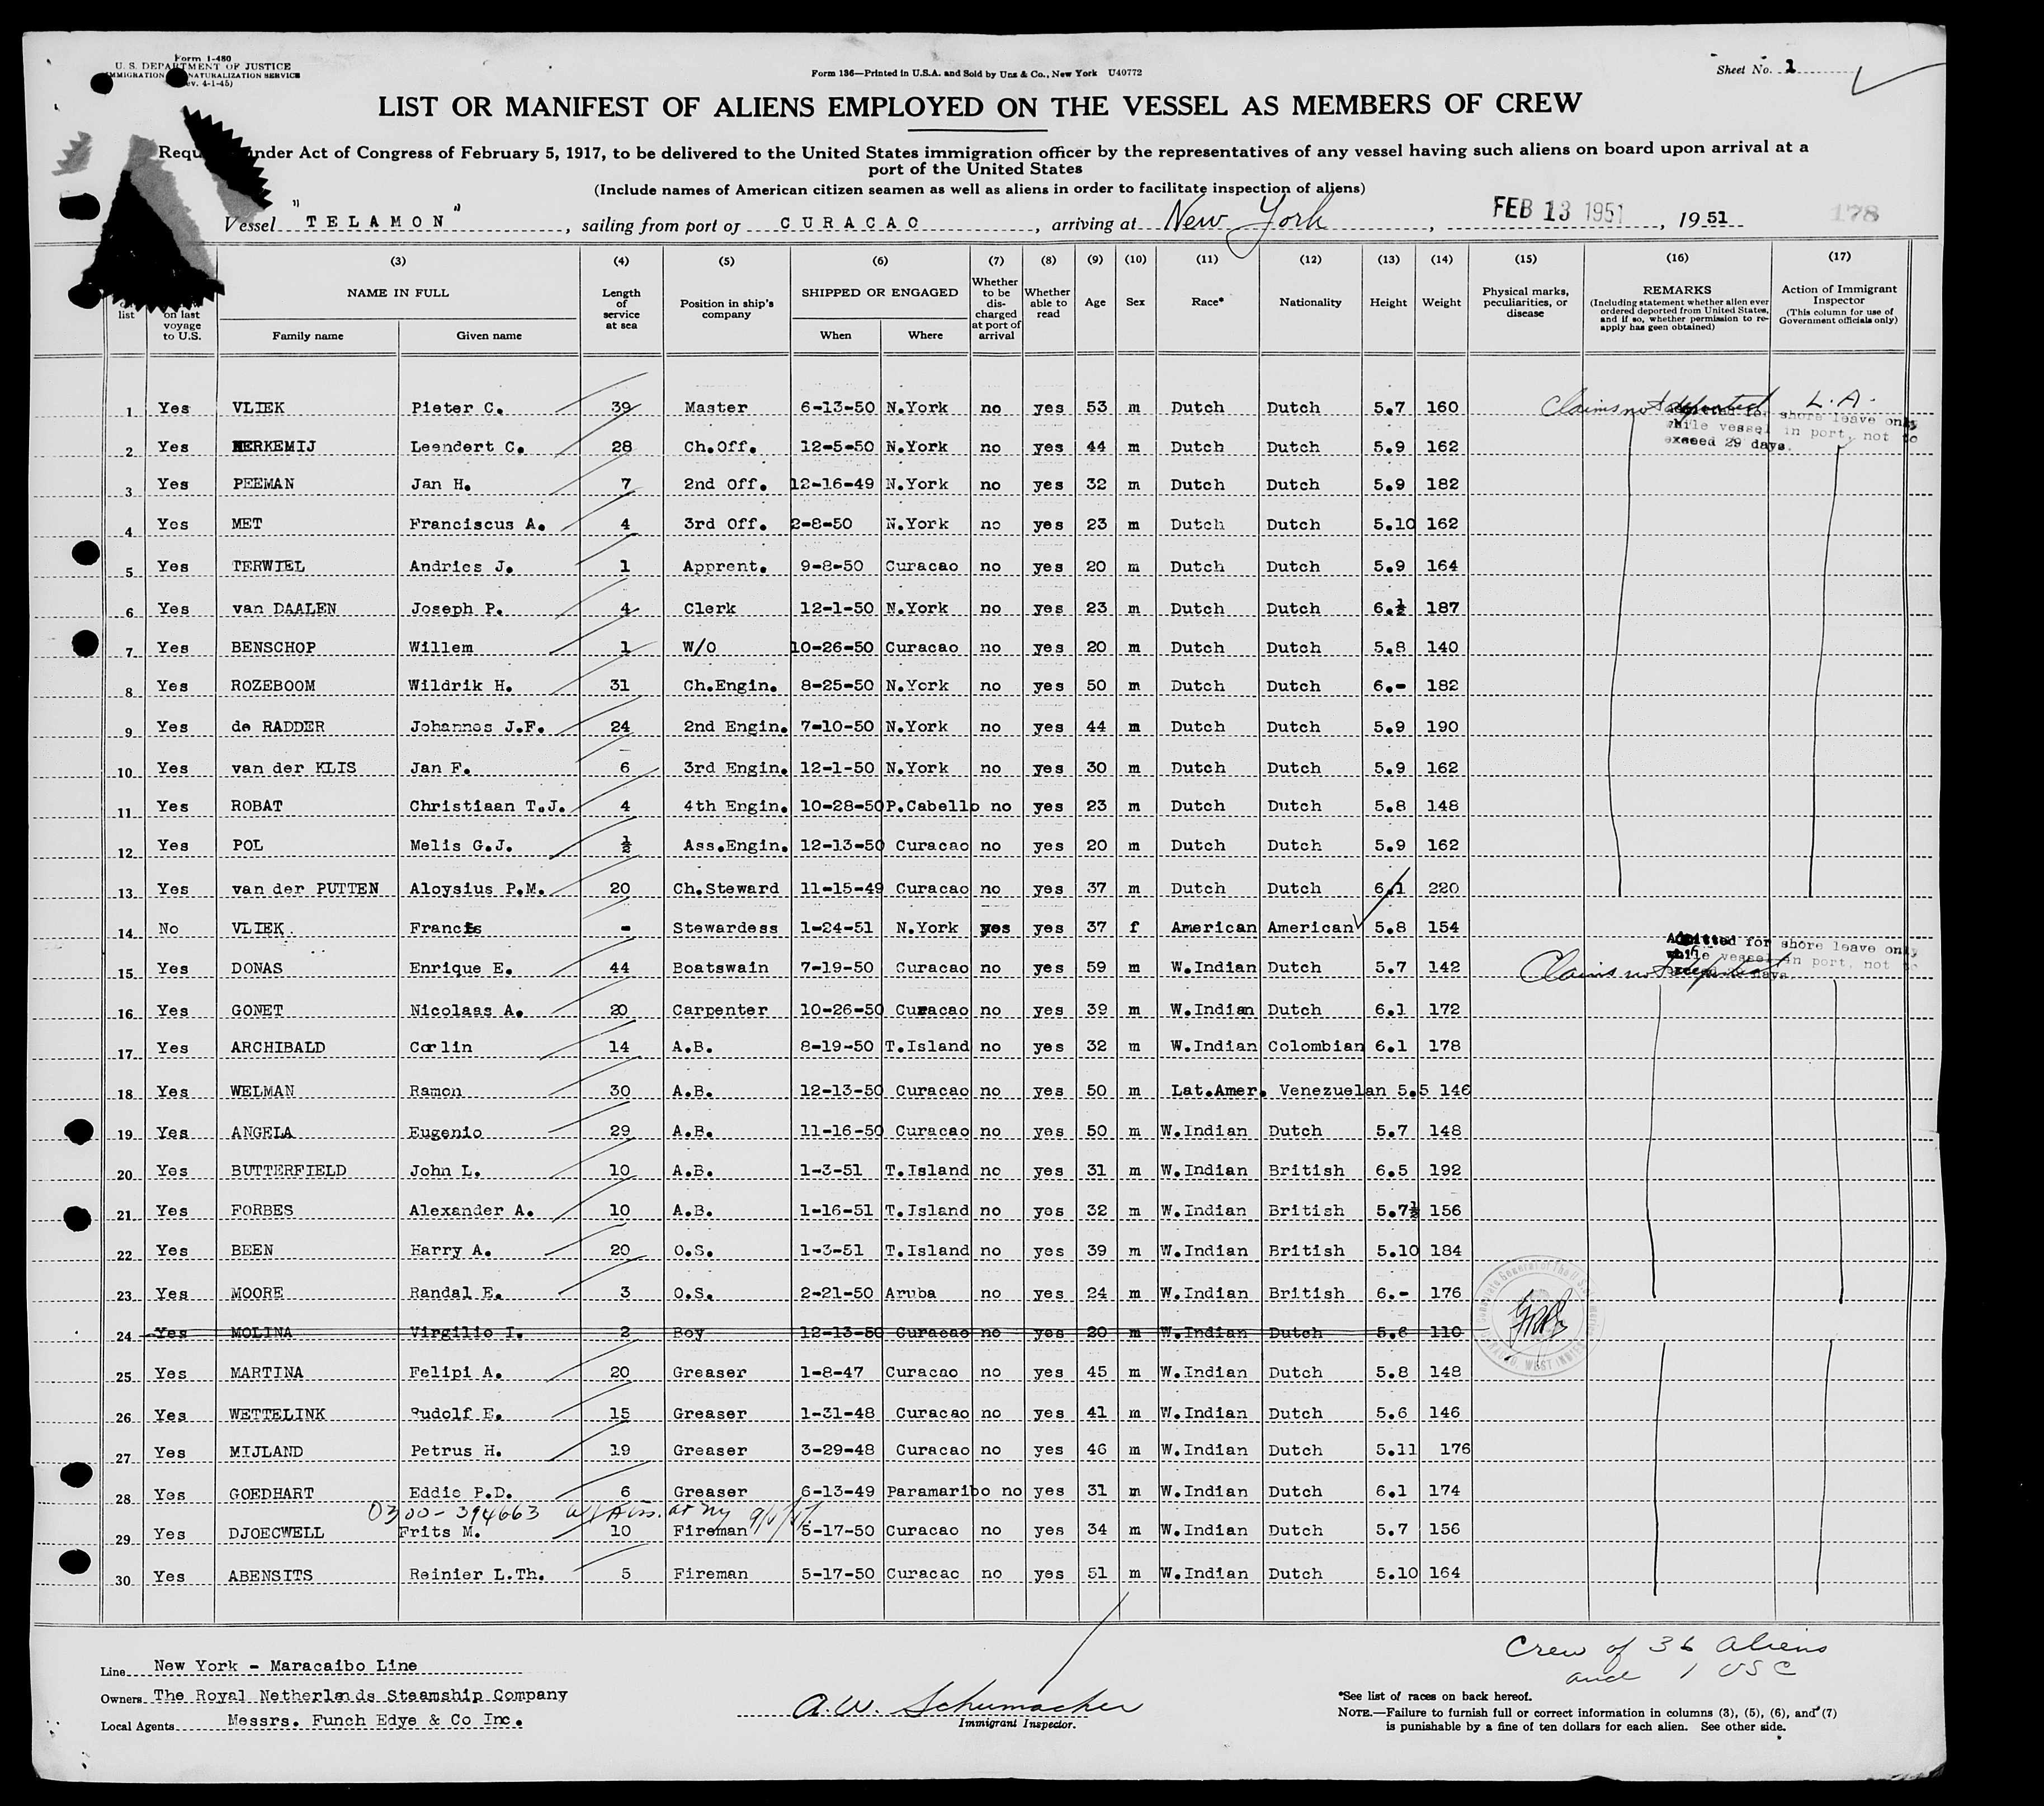 Form 1-480
U. S. DEPARTMENT OF JUSTICE
IMMIGRATION NATURALIZATION SERVICE
ev. 4-1-45)
Form 136—Printed in U.S.A. and Sold by Unz & Co., New York U40772
Sheet No. 1
LIST OR MANIFEST OF ALIENS EMPLOYED ON THE VESSEL AS MEMBERS OF CREW
Requ under Act of Congress of February 5, 1917, to be delivered to the United States immigration officer by the representatives of any vessel having such aliens on board upon arrival at a
port of the United States
(Include names of American citizen seamen as well as aliens in order to facilitate inspection of aliens)
Vessel "TELAMON", sailing from port of CURACAO, arriving at New York, FEB 13 1951, 1951 178
(3) (4) (5) (6) (7) (8) (9) (10) (11) (12) (13) (14) (15) (16) (17)
list
on last voyage to U.S.
NAME IN FULL
Family name Given name
Length of service at sea
Position in ship's company
SHIPPED OR ENGAGED
When Where
Whether to be discharged at port of arrival
Whether able to read
Age
Sex
Race*
Nationality
Height
Weight
Physical marks, peculiarities, or disease
REMARKS
(Including statement whether alien ever ordered deported from United States, and if so, whether permission to re-apply has geen obtained)
Action of Immigrant Inspector
(This column for use of Government officials only)
1 Yes VLIEK Pieter C. 39 Master 6-13-50 N.York no yes 53 m Dutch Dutch 5.7 160 Claims not deported L.A.
for shore leave only
while vessel in port, not to
exceed 29 days.
2 Yes HERKEMIJ Leendert C. 28 Ch.Off. 12-5-50 N.York no yes 44 m Dutch Dutch 5.9 162
3 Yes PEEMAN Jan H. 7 2nd Off. 12-16-49 N.York no yes 32 m Dutch Dutch 5.9 182
4 Yes MET Franciscus A. 4 3rd Off. 2-8-50 N.York no yes 23 m Dutch Dutch 5.10 162
5 Yes TERWIEL Andries J. 1 Apprent. 9-8-50 Curacao no yes 20 m Dutch Dutch 5.9 164
6 Yes van DAALEN Joseph P. 4 Clerk 12-1-50 N.York no yes 23 m Dutch Dutch 6.½ 187
7 Yes BENSCHOP Willem 1 W/O 10-26-50 Curacao no yes 20 m Dutch Dutch 5.8 140
8 Yes ROZEBOOM Wildrik H. 31 Ch.Engin. 8-25-50 N.York no yes 50 m Dutch Dutch 6.- 182
9 Yes de RADDER Johannes J.F. 24 2nd Engin. 7-10-50 N.York no yes 44 m Dutch Dutch 5.9 190
10 Yes van der KLIS Jan F. 6 3rd Engin. 12-1-50 N.York no yes 30 m Dutch Dutch 5.9 162
11 Yes ROBAT Christiaan T.J. 4 4th Engin. 10-28-50 P.Cabello no yes 23 m Dutch Dutch 5.8 148
12 Yes POL Melis G.J. ½ Ass.Engin. 12-13-50 Curacao no yes 20 m Dutch Dutch 5.9 162
13 Yes van der PUTTEN Aloysius P.M. 20 Ch.Steward 11-15-49 Curacao no yes 37 m Dutch Dutch 6.1 220
14 No VLIEK Francis - Stewardess 1-24-51 N.York yes yes 37 f American American 5.8 154
Admitted for shore leave only
while vessel in port, not to
15 Yes DONAS Enrique E. 44 Boatswain 7-19-50 Curacao no yes 59 m W.Indian Dutch 5.7 142 Claims not deported
16 Yes GONET Nicolaas A. 20 Carpenter 10-26-50 Curacao no yes 39 m W.Indian Dutch 6.1 172
17 Yes ARCHIBALD Carlin 14 A.B. 8-19-50 T.Island no yes 32 m W.Indian Colombian 6.1 178
18 Yes WELMAN Ramon 30 A.B. 12-13-50 Curacao no yes 50 m Lat.Amer. Venezuelan 5.5 146
19 Yes ANGELA Eugenio 29 A.B. 11-16-50 Curacao no yes 50 m W.Indian Dutch 5.7 148
20 Yes BUTTERFIELD John L. 10 A.B. 1-3-51 T.Island no yes 31 m W.Indian British 6.5 192
21 Yes FORBES Alexander A. 10 A.B. 1-16-51 T.Island no yes 32 m W.Indian British 5.7½ 156
22 Yes BEEN Harry A. 20 O.S. 1-3-51 T.Island no yes 39 m W.Indian British 5.10 184
23 Yes MOORE Randal E. 3 O.S. 2-21-50 Aruba no yes 24 m W.Indian British 6.- 176
24 Yes MOLINA Virgilio I. 2 Boy 12-13-50 Curacao no yes 20 m W.Indian Dutch 5.6 110
25 Yes MARTINA Felipi A. 20 Greaser 1-8-47 Curacao no yes 45 m W.Indian Dutch 5.8 148
26 Yes WETTELINK Rudolf E. 15 Greaser 1-31-48 Curacao no yes 41 m W.Indian Dutch 5.6 146
27 Yes MIJLAND Petrus H. 19 Greaser 3-29-48 Curacao no yes 46 m W.Indian Dutch 5.11 176
28 Yes GOEDHART Eddie P.D. 6 Greaser 6-13-49 Paramaribo no yes 31 m W.Indian Dutch 6.1 174
0300-394663
29 Yes DJOECWELL Frits M. 10 Fireman 5-17-50 Curacao no yes 34 m W.Indian Dutch 5.7 156
30 Yes ABENSITS Reinier L.Th. 5 Fireman 5-17-50 Curacao no yes 51 m W.Indian Dutch 5.10 164
Crew of 36 Aliens
and 1 USC
Line New York - Maracaibo Line
Owners The Royal Netherlands Steamship Company
Local Agents Messrs. Funch Edye & Co Inc.
A.W. Schumacher
Immigrant Inspector.
*See list of races on back hereof.
NOTE.—Failure to furnish full or correct information in columns (3), (5), (6), and (7)
is punishable by a fine of ten dollars for each alien. See other side.